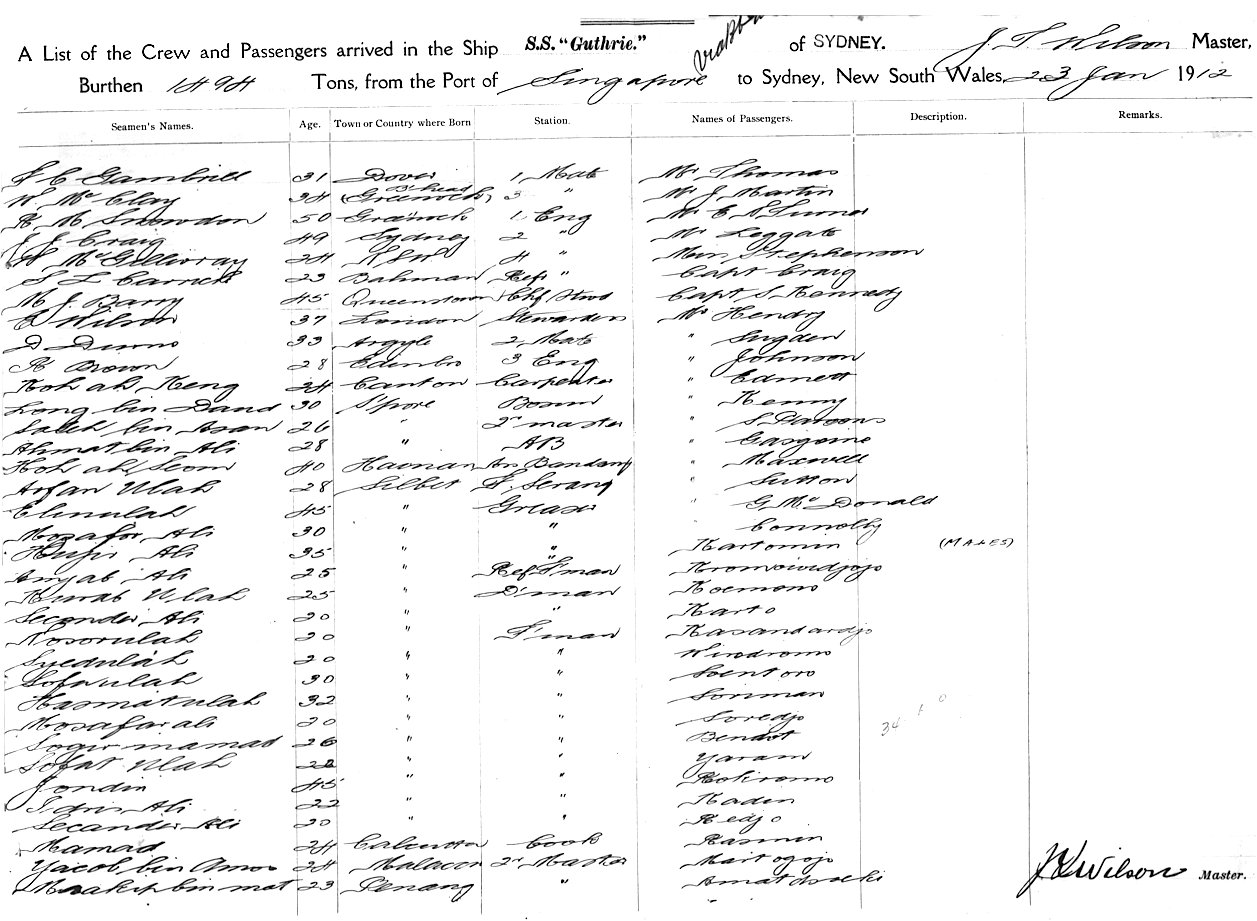 A List of the Crew and Passengers arrived in the Ship S.S. "Guthrie." of SYDNEY. J Wilson Master,
Burthen 1494 Tons, from the Port of Singapore to Sydney, New South Wales, 23 Jan 1912
Seamen's Names. Age. Town or Country where Born Station. Names of Passengers. Description. Remarks.
C Gambrill 31 Dover 1 Mate Mr Thomas
W McClay 34 Greenock B'head 3 " Mr J Martin
M Snowdon 50 Greenock 1 Eng Mr E
J J Craig 49 Sydney 2 " Mr Leggate
McGillivray 24 NSW 4 " Stephenson
S L Carrick 23 Refr " Capt Craig
M J Barry 45 Queenstown Chf Stwd Capt S Kennedy
Wilson 37 London Stewardess Mr Hendry
D 33 Argyle 2 Mate " Sugden
Brown 28 Edinbro 3 Eng " Johnson
Koh ah Keng 24 Canton Carpenter " Edmett
Long bin Daud 30 S'pore Bosun " Kenny
Saleh bin Asan 26 " 2nd master " S Parsons
Ahmat bin Ali 28 " AB " Gasgoine
Koh ah 40 Hainan " Maxwell
Arfan Ulah 28 Silhet F. Serang " Sutton
Elimulah 45 " Greaser " G. McDonald
Mosafor Ali 30 " " Connolly
Ali 35 " " Kartomin (MALES)
Ali 25 " Ref F'man Kromowidjojo
Ulah 25 " D'man Koemono
Secander Ali 20 " " Karto
Nosorulah 20 " F'man Kasandardjo
Syedulah 20 " " Wirodromo
30 " " Sentoro
Hasmatulah 32 " " Soniman
Mosafar ali 20 " " Soredjo
34
Sogir mamad 26 " "
Sofat Ulah 22 " " Yaram
Jondin 45 " "
Idris Ali 22 " " Kadin
Secander Ali 20 " " Redjo
Mamad 24 Calcutta Cook Kasmin
Yacob bin Amos 24 Malacca 2nd Master Martogojo
bin mat 23 Penang "
Wilson Master.